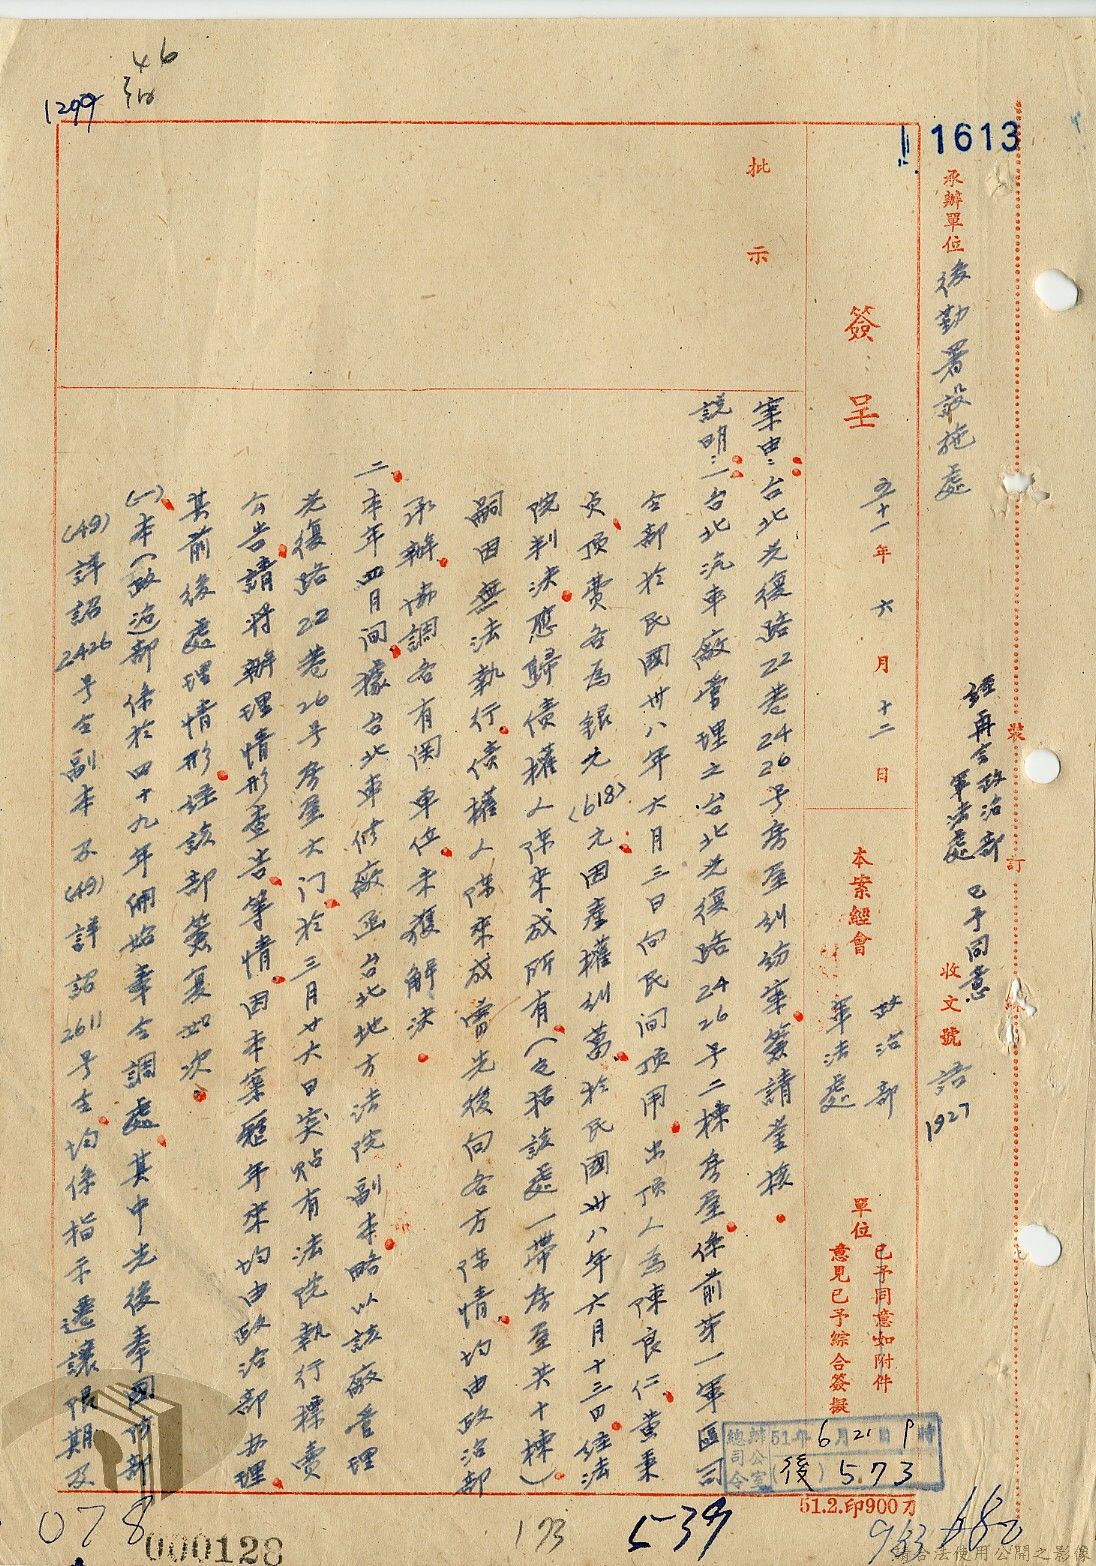 46
1299
1613
承辦單位 後勤署設施處
經再会政治部軍法處 已予同意
收文號 話1927
裝
訂
線
簽呈 五十一年六月十二日
本案經會 政治部 軍法處 單位 已予同意如附件 意見已予綜合簽擬
批示
案由：台北光復路22巷24 26号房屋糾紛案簽請鑒核
說明：一台北汽車廠管理之台北光復路24 26号二棟房屋係前第一軍區司
令部於民國卅八年六月三日向民间頂用出頂人為陳良仁黄秉
贞頂費各為銀元(618)元因產權糾葛於民國卅八年六月十三日經法
院判決應歸债權人陈來成所有(包括該處一帶房屋共十棟)
嗣因無法執行债權人陈來成曾先後向各方陈情均由政治部
承辦協調各有関单位未獲解決
二本年四月间據台北車修廠函台北地方法院副本略以該廠管理
光復路22巷26号房屋大门於三月廿六日突貼有法院執行標賣
公告請将辦理情形查告等情因本案歷年來均由政治部办理
其前後處理情形經該部簽复如次
(一)本(政治)部係於四十九年開始奉令調處其中先後奉國防部
(49)詳詔2426号令副本及(49)詳詔2611号令均係指示遷讓限期及
總司令辦公室 51年6月21日9時 (後)573
51.2.印900刀
078
000128
173
539
933
682
請合法使用公開之影像